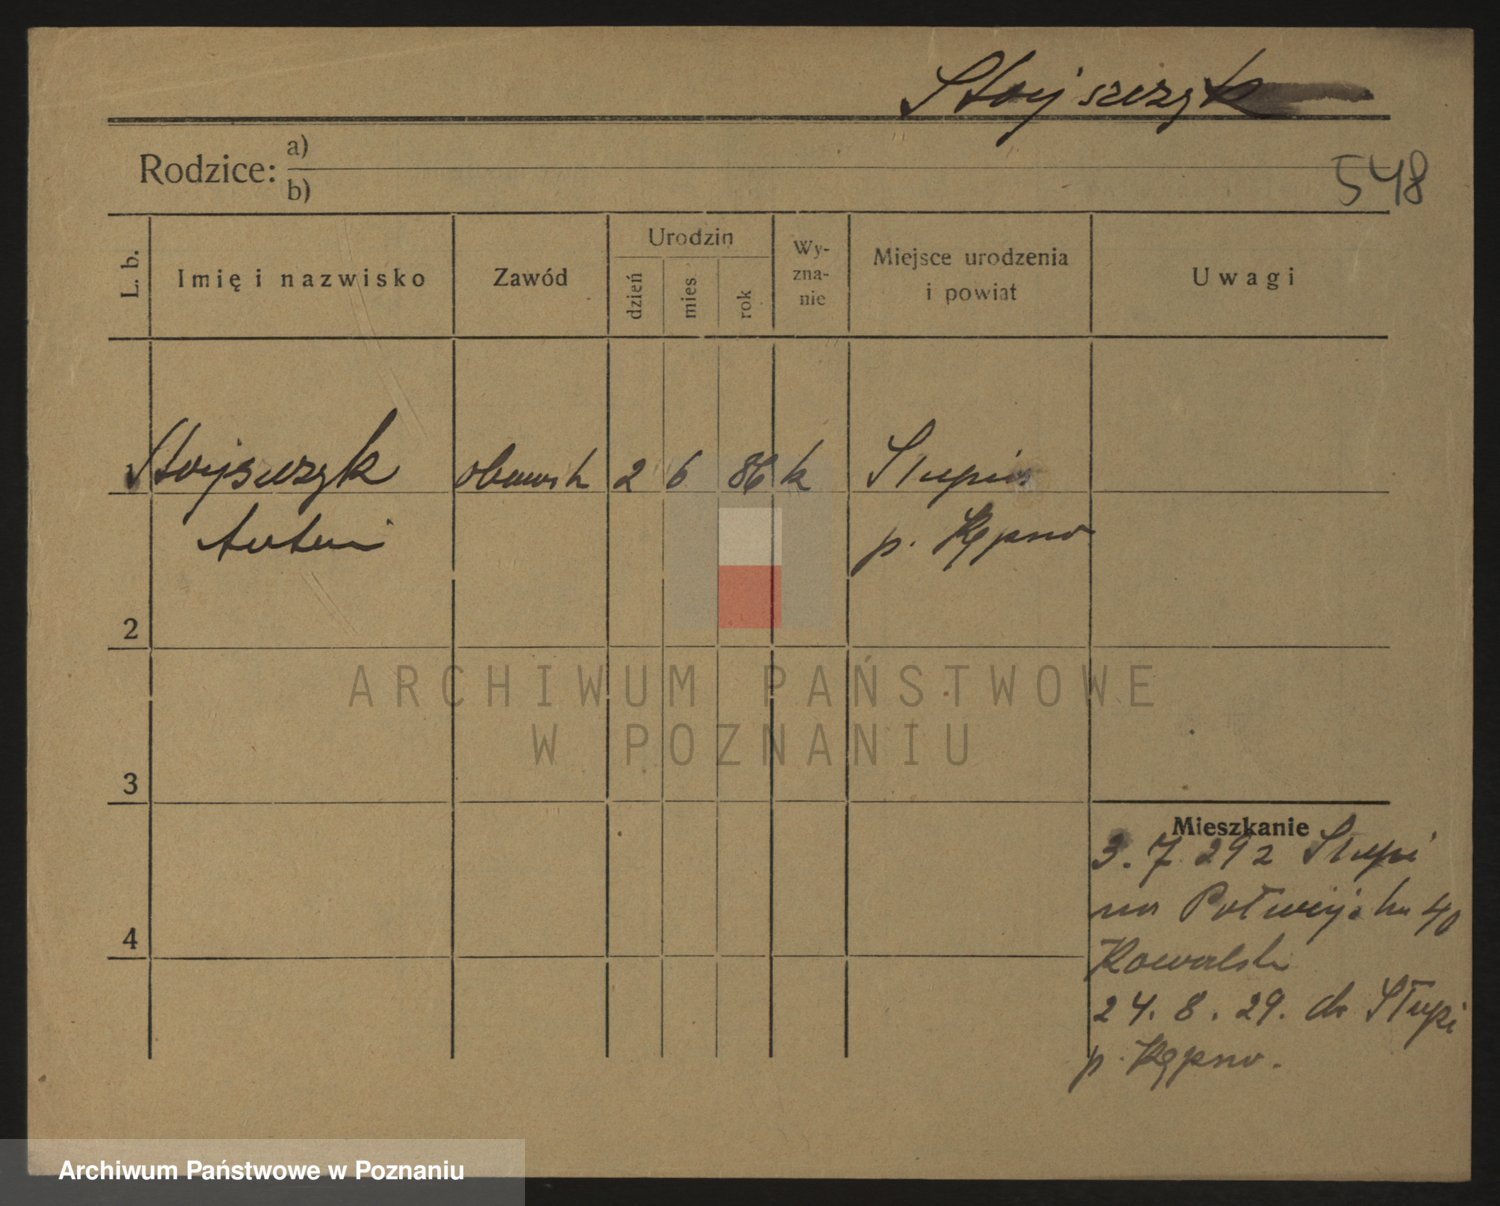 Stojszczyk
Rodzice:
a)
b)
548
L. b.
Imię i nazwisko
Zawód
Urodzin
dzień
mies
rok
Wy-
zna-
nie
Miejsce urodzenia
i powiat
Uwagi
Stojszczyk
2 6 86 k
Słupia
Antoni
p. Kępno
2
3
4
Mieszkanie
3. 7 29 z Słupi
na
40
Kowalsk
24. 8. 29. do Słupi
p. Kępno.
ARCHIWUM PAŃSTWOWE
W POZNANIU
Archiwum Państwowe w Poznaniu